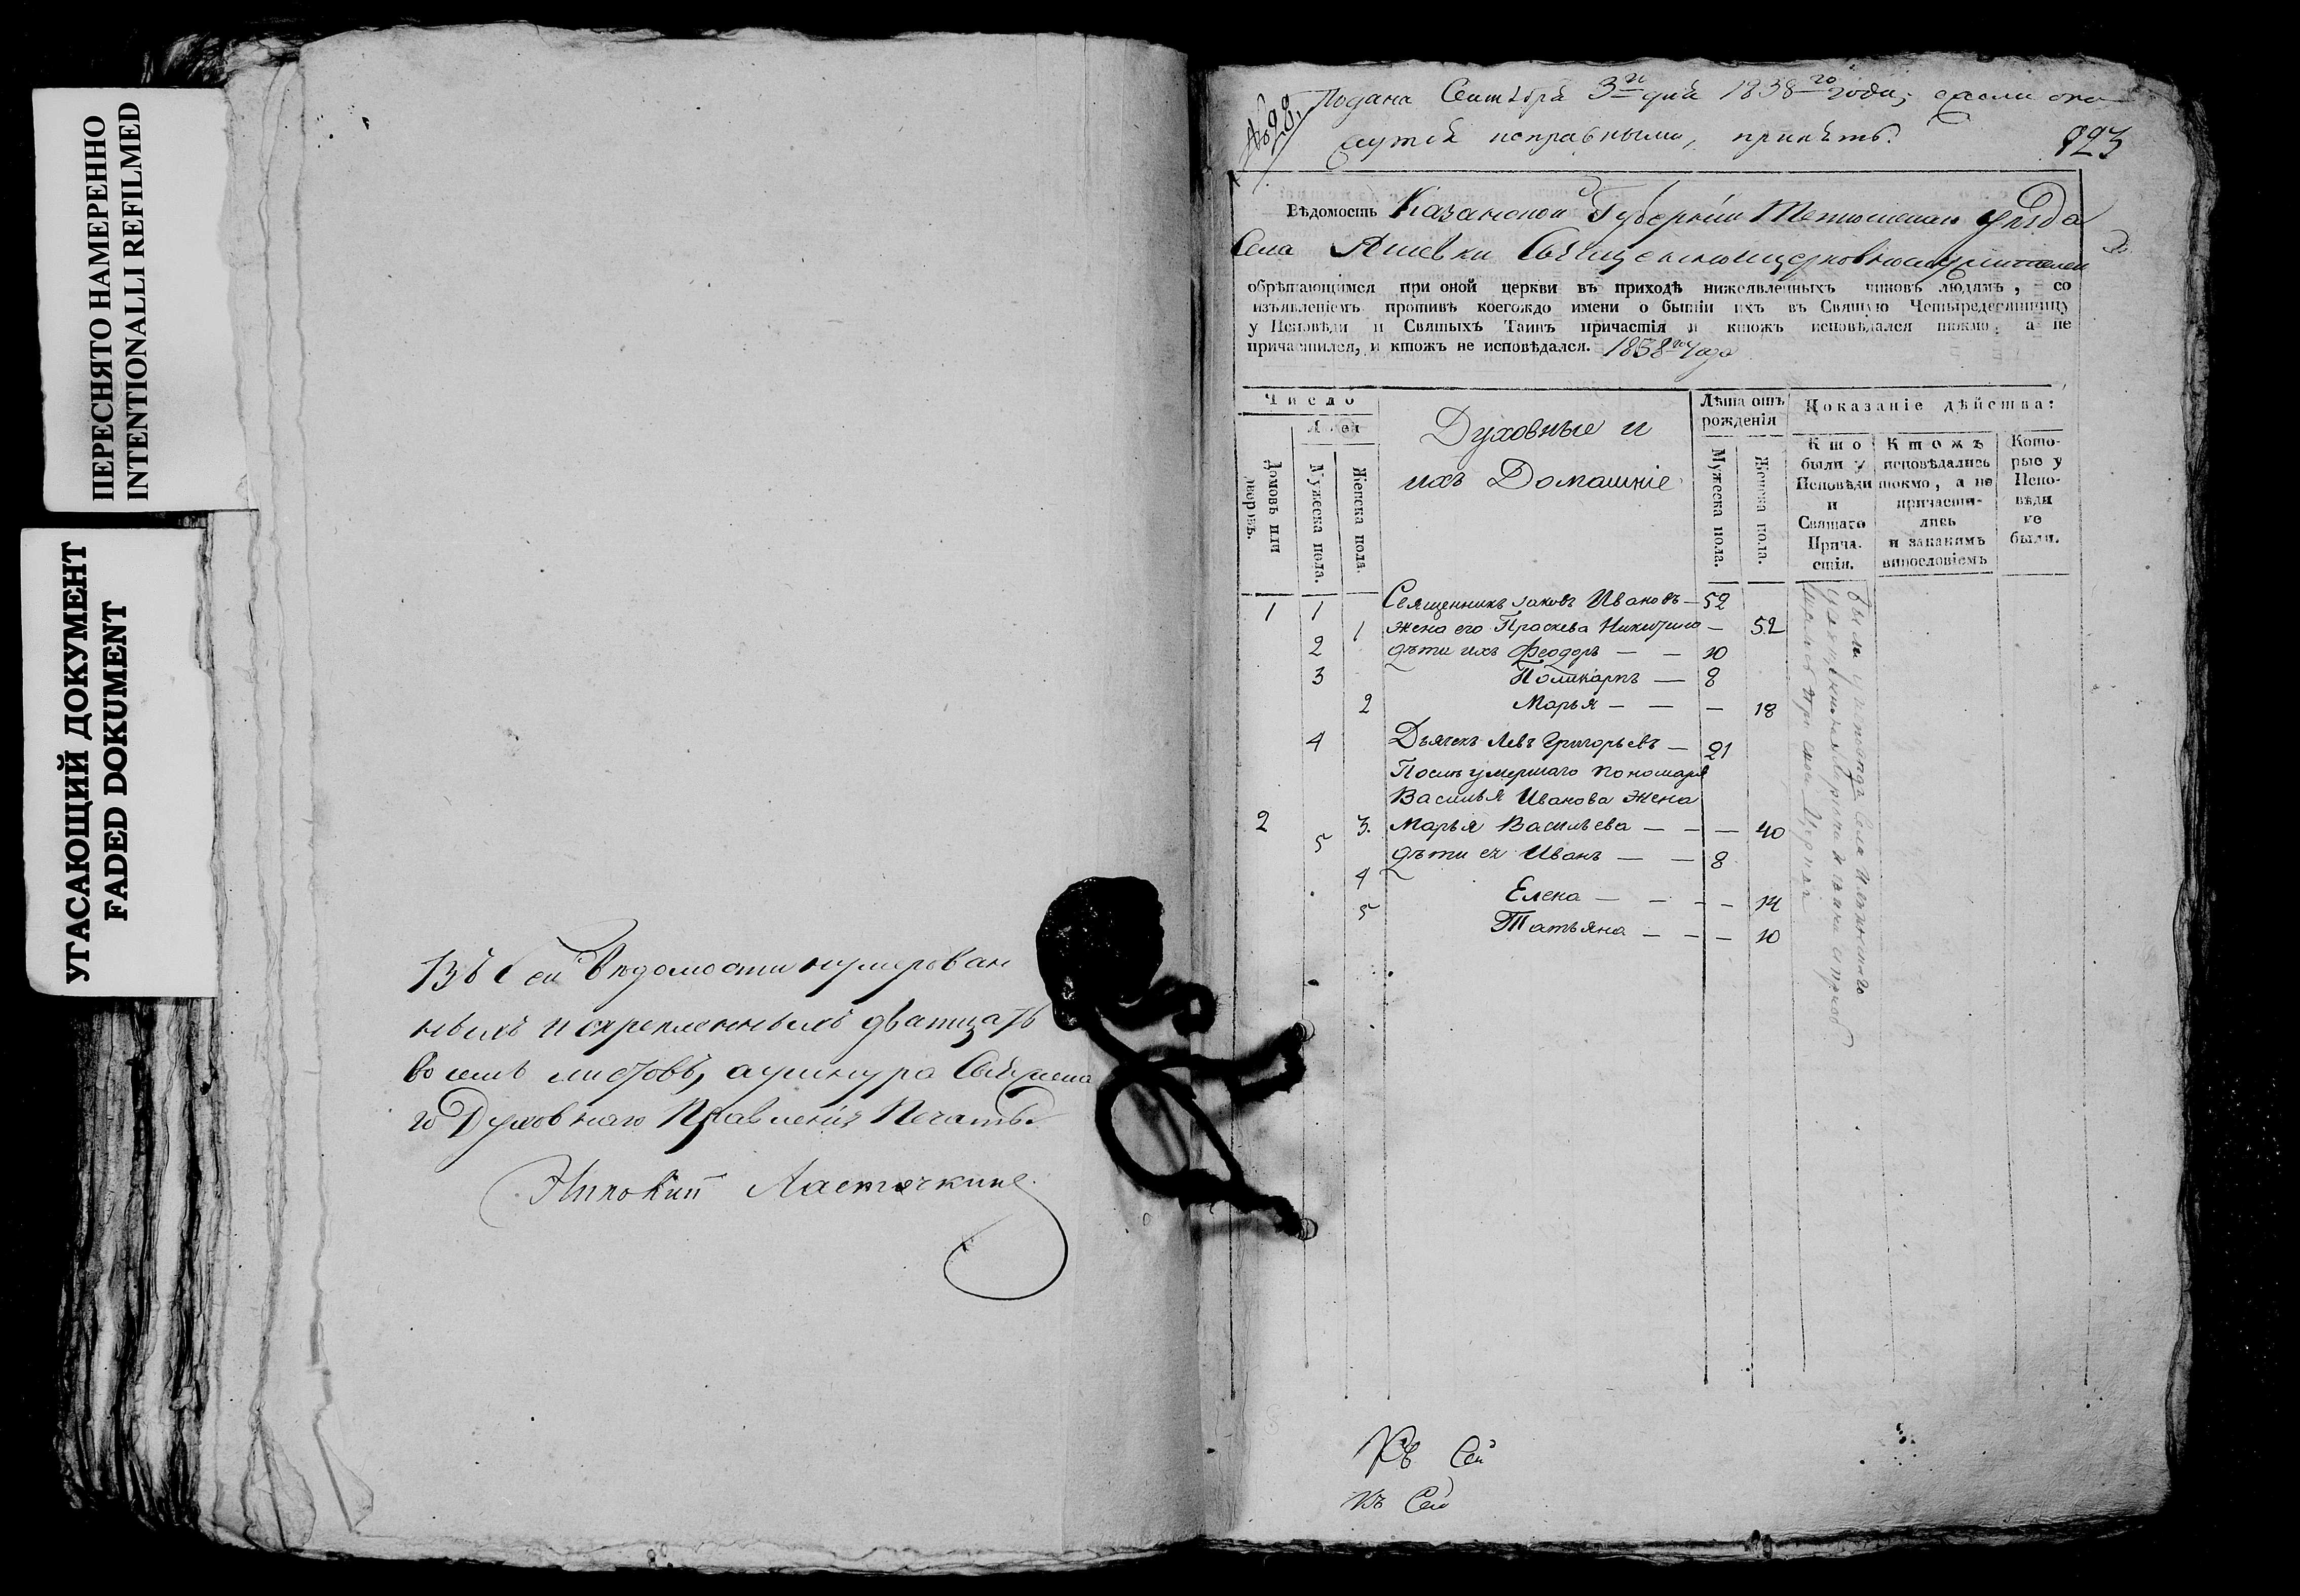 ПЕРЕСНЯТО НАМЕРЕННО
INTENTIONALLI REFILMED
УГАСАЮЩИЙ ДОКУМЕНТ
FADED DOKUMENT
Въ сей Ведомости нумерован
ныхъ и скрепленныхъ дватцать
восемь листовъ, а у шнура
го Духовнаго Правленія Печать.
Ласточкинъ
№ 28.
Подана Сентября 3го дня 1838го года; ежели ока
жутся исправными, принять.
823
Вѣдомость Казанской Губерніи Тетюшскаго уѣзда
Села
обрѣтающимся при оной церкви въ приходѣ нижеявленныхъ чиновъ людямъ, со
изъявленіемъ противъ коегождо имени о бытіи ихъ въ Святую Четыредесятницу
у Исповѣди и Святыхъ Таинъ причастія и ктожъ исповѣдался токмо, а не
причастился, и ктожъ не исповѣдался. 1838го года
Число
Людей
Домовъ или дворовъ.
Мужеска пола.
Женска пола.
Духовные и
ихъ Домашніе.
Лѣта отъ рожденія
Мужеска пола.
Женска пола.
Показаніе дѣйства:
Кто были у Исповѣди и Святаго Прича- стія.
Ктожъ исповѣдались токмо, а не причасти- лись и закакимъ винословіемъ
Кото- рые у Испо- вѣди не были.
1 1 Священникъ Іаковъ Ивановъ — 52
1 жена его Праскева Никитина — 52
2 дѣти ихъ Феодоръ — — 10
3 Поликарпъ — 8
2 Марья — — — 18
4 Дьячекъ Левъ Григорьевъ — 21
Послѣ умершаго пономаря
Василья Иванова жена
2 3. Марья Васильева — — — 40
5 дѣти ея Иванъ — — 8
4 Елена — — — — 14
5 Татьяна — — — 10
Къ Сей
Къ Сей